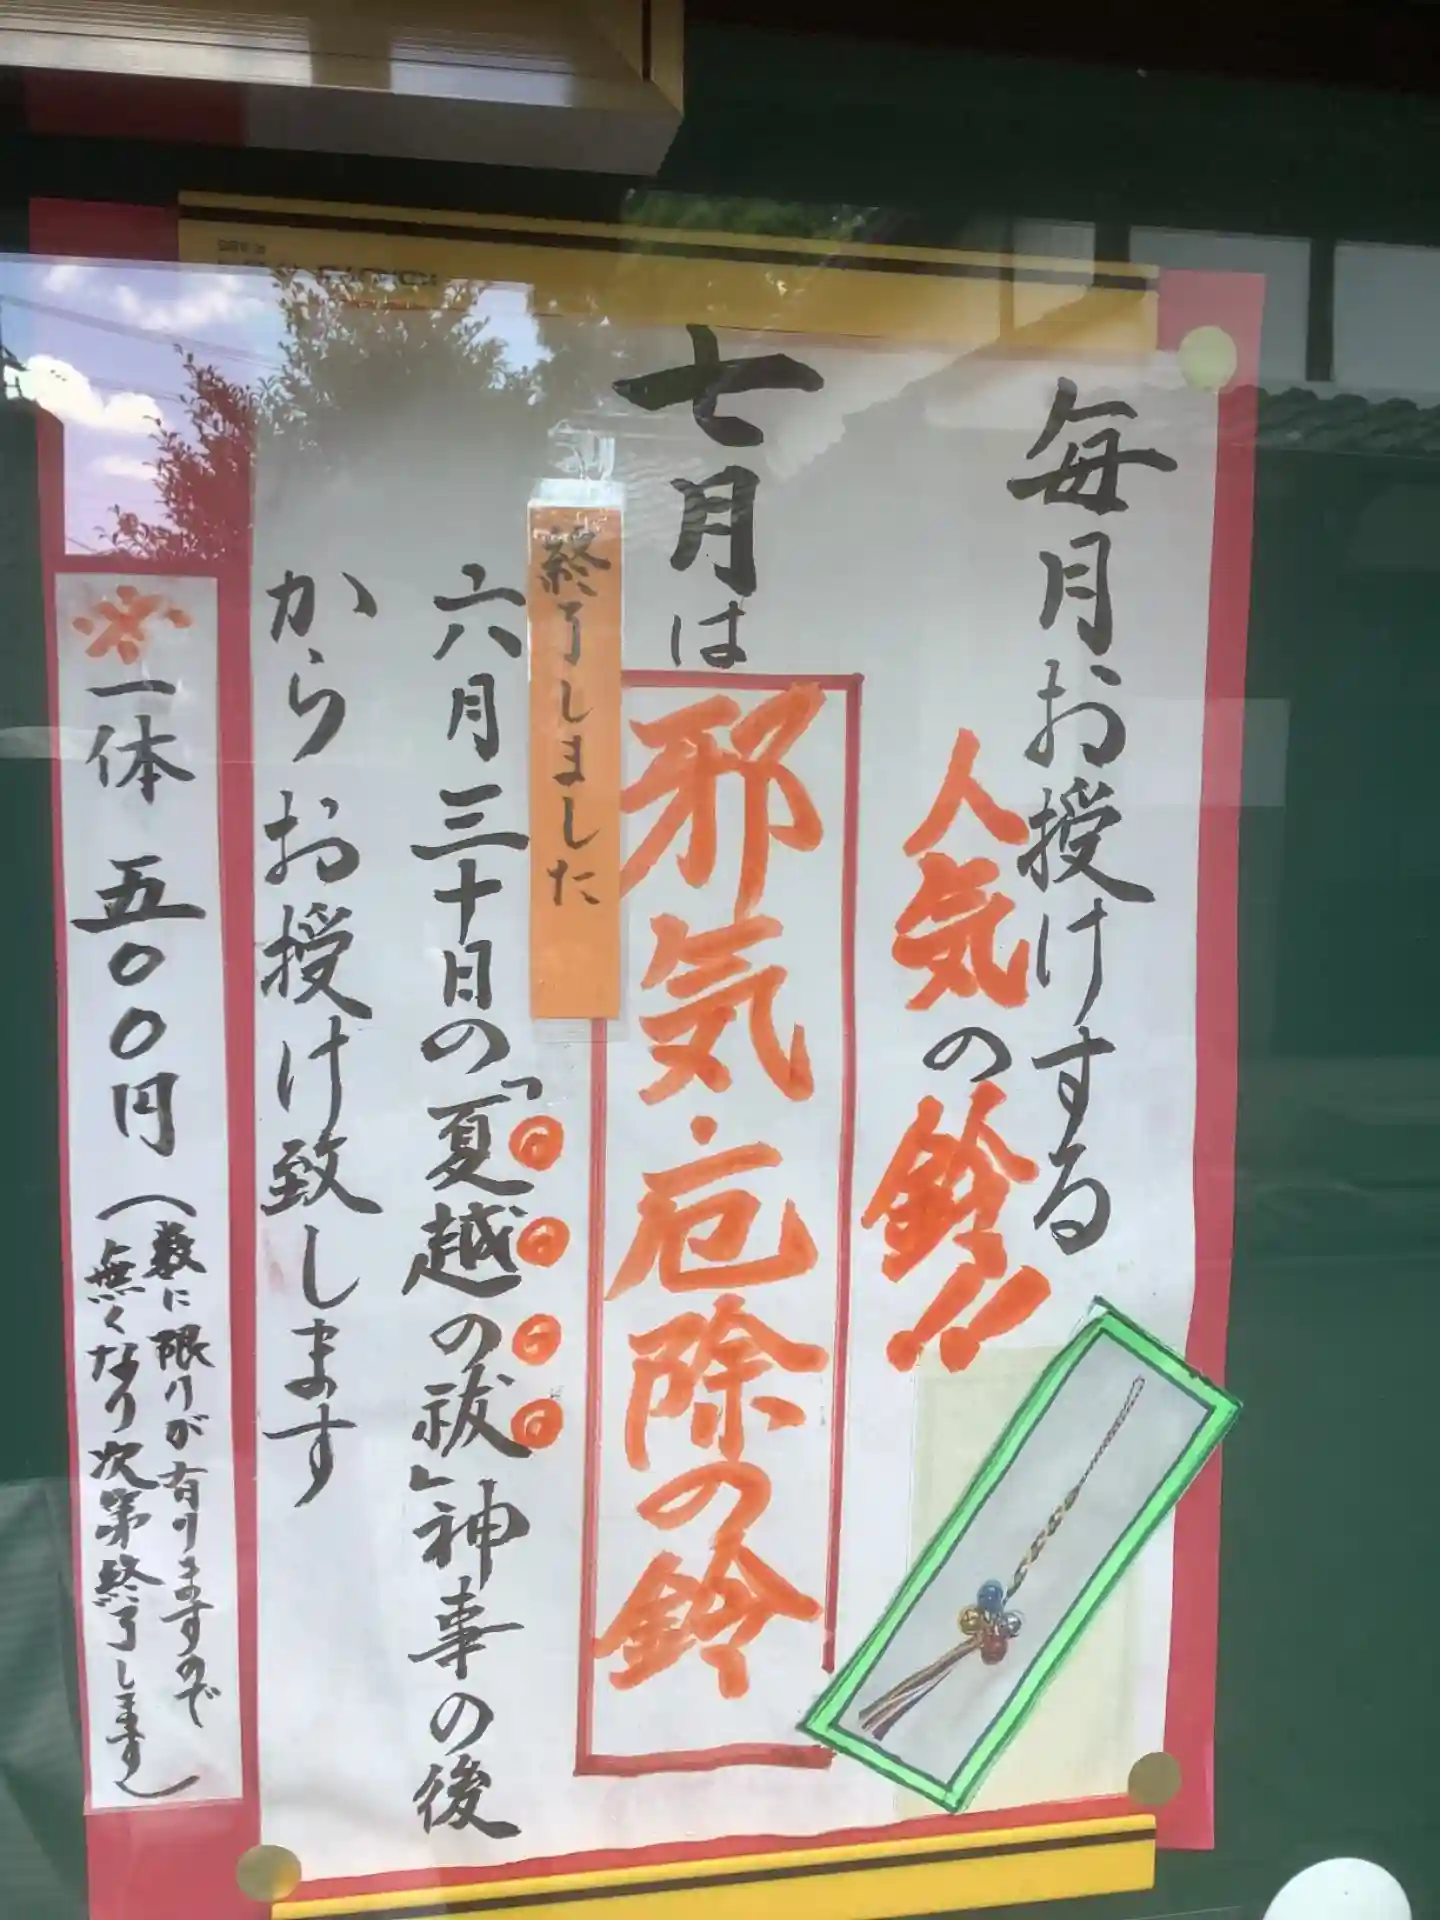 毎月お授けする
人気の鈴!!
七月は
邪気・厄除の鈴
終了しました
六月三十日の「夏越の祓」神事の後
からお授け致します
※一体 五〇〇円
(数に限りが有りますので
無くなり次第終了します)